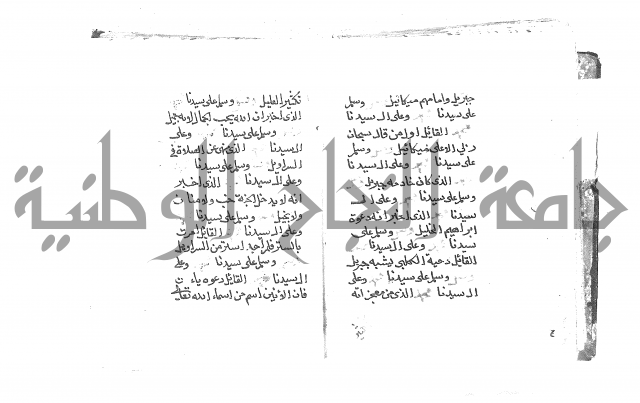 جبريل وامامهم ميكائيل وسلم
على سيدنا وعلى ال سيدنا
القائل اول من قال سبحان
ربي الاعلى ميكائيل وسلم
على سيدنا وعلى ال سيدنا
الذي كان خادمه جبريل
وسلم على سيدنا وعلى ال
سيدنا الذي اخبر انه دعوة
ابراهيم الخليل وسلم على
سيدنا وعلى ال سيدنا
القائل دحية الكلبي يشبه جبريل
وسلم على سيدنا وعلى
ال سيدنا الذي من معجزاته
تكثير القليل وسلم على سيدنا
الذي اخبر ان الله يحب
وسلم على سيدنا وعلى
ال سيدنا الذي نهى عن الصلاة في
السراويل وسلم على سيدنا
وعلى ال سيدنا الذي اخبر
انه لا يدخل الجنة خب ولا منان
ولا بخيل وسلم على سيدنا
وعلى ال سيدنا القائل
وسلم على سيدنا وعلى
ال سيدنا القائل دعوه
فان الانين اسم من اسماء الله تعالى
جامعة النجاح الوطنية